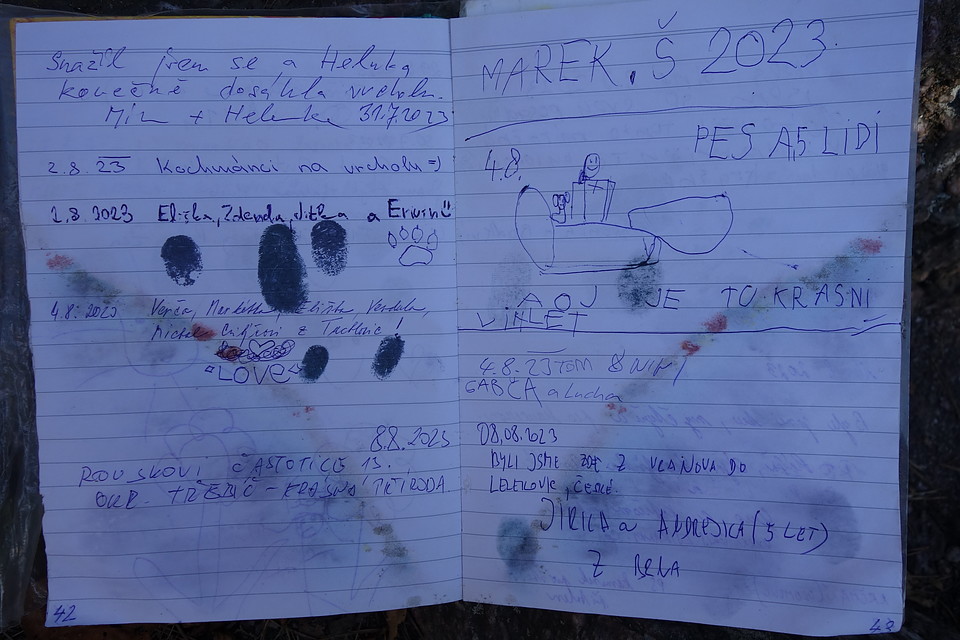 Snažil jsem se a Helenka
konečně dosáhla vrcholu.
Mín + Helenka 31.7.2023
2.8.23 Kochmánci na vrcholu =)
2.8.2023 Eliška, Zdenda, Jitka a Erwin
4.8.2023 Verča, Markétka, Eliška, Vendula,
Michal z !
"LOVE"
8.8.2023
ROUSKOVI ČASTOTICE 13.,
OKR. TŘEBÍČ - KRÁSNÁ PŘÍRODA
42
MAREK.Š 2023
PES A,5 LIDÍ
4.8.
AOJ JE TO KRASNI
VIHLET
4.8.23 TOM
GABČA a Lucka
08.08.2023
BYLI JSME Z VRANOVA DO
LELEKOVIC, ČESKÉ.
JIRKA a ANDREJKA (5 LET)
Z BRNA
43